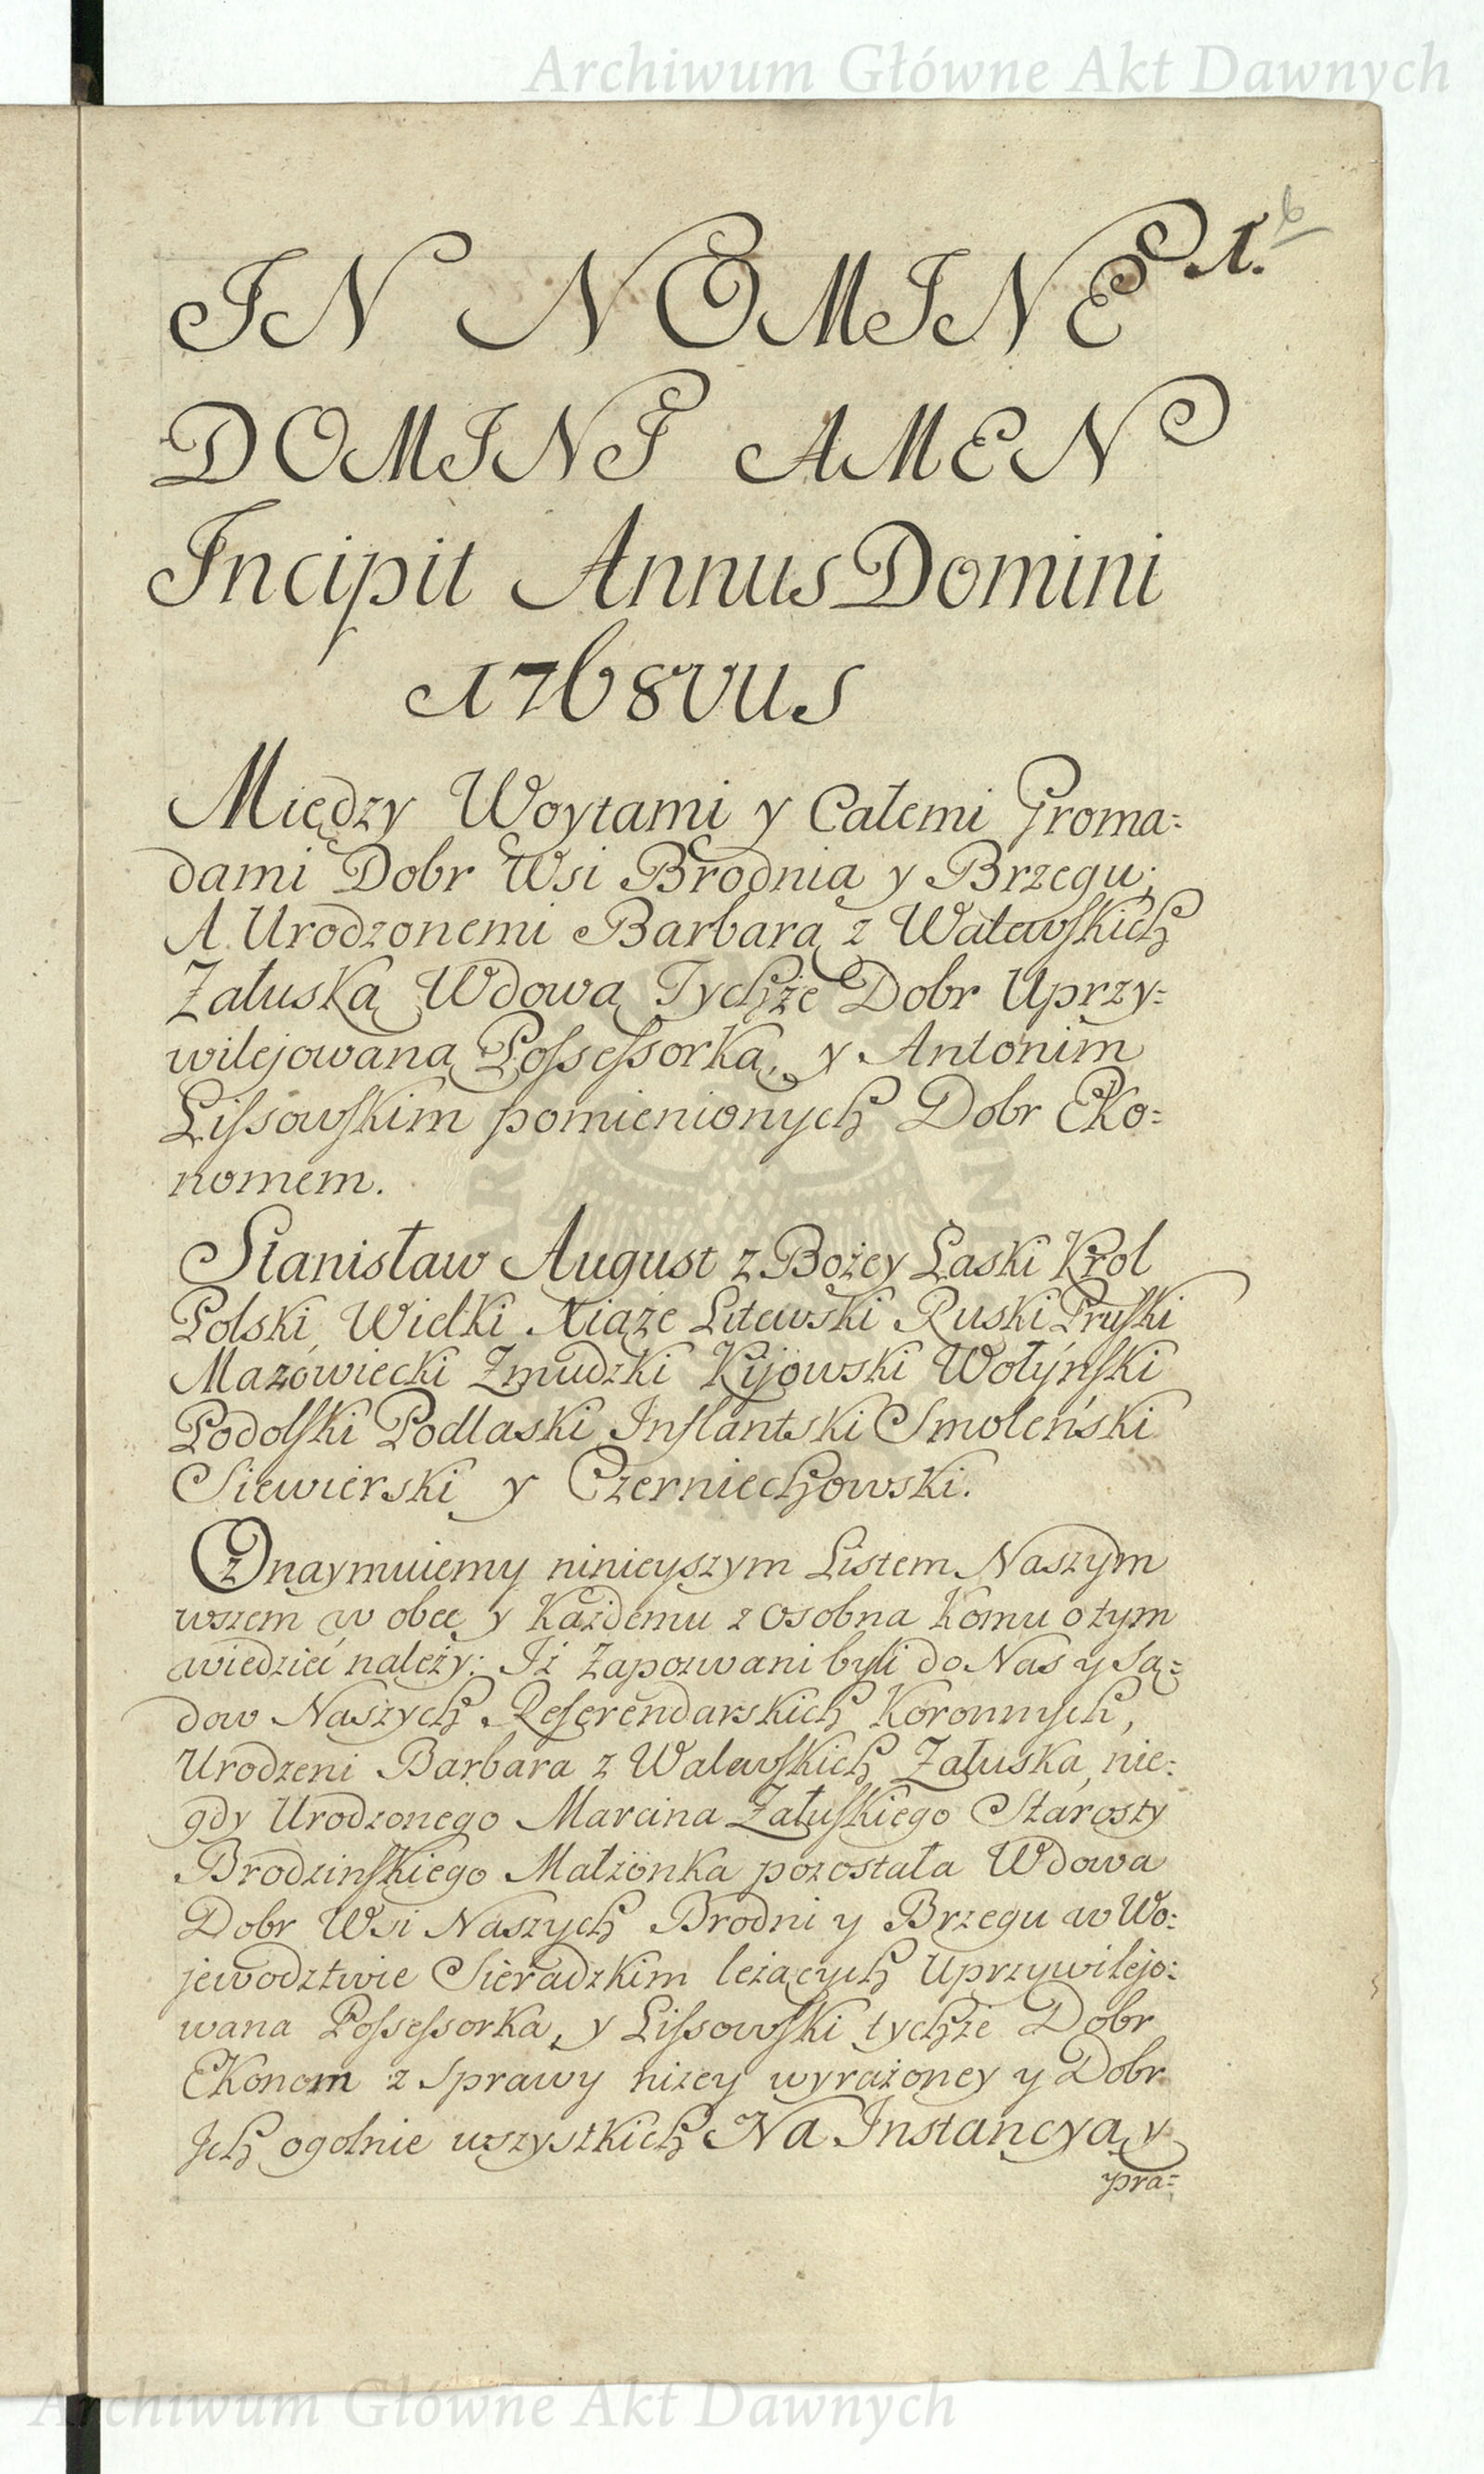 Archiwum Główne Akt Dawnych
6
1.
IN NOMINE
DOMINI AMEN
Incipit Annus Domini
1768vus
Między Woytami y Całemi Groma=
dami Dobr Wsi Brodnia y Brzegu;
A Urodzonemi Barbarą z Walewskich
Załuską Wdową Tychże Dobr Uprzy=
wilejowaną Possessorką, y Antonim
Lissowskim pomienionych Dobr Eko=
nomem.
Stanisław August z Bożey Łaski Krol
Polski, Wielki Xiąże Litewski Ruski Pruski
Mazowiecki Zmudzki Kijowski Wołyński
Podolski Podlaski Inflantski Smoleński
Siewierski y Czerniechowski.
Oznaymuiemy ninieyszym Listem Naszym
wszem w obec y Każdemu z osobna Komu o tym
wiedzieć należy: Iż Zapozwani byli do Nas y Są=
dow Naszych Referendarskich Koronnych,
Urodzeni Barbara z Walewskich Załuska, nie=
gdy Urodzonego Marcina Załuskiego Starosty
Brodzinskiego Małżonka pozostała Wdowa
Dobr Wsi Naszych Brodni y Brzegu w Wo=
jewodztwie Sieradzkim leżących Uprzywilejo=
wana Possessorka, y Lissowski tychże Dobr
Ekonom z sprawy niżey wyrażoney y Dobr
Ich ogolnie wszystkich Na Instancyą y
pra=
Archiwum Główne Akt Dawnych